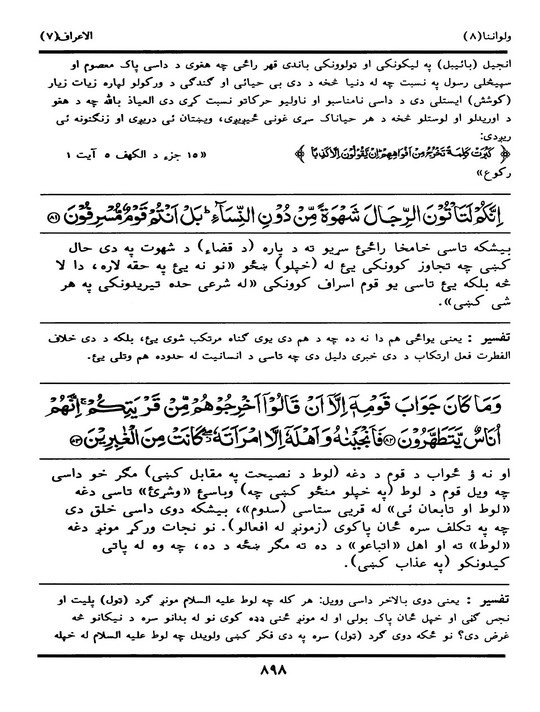 ولواننا(۸) الاعراف(۷)
انجیل (بائیبل) په لیکونکی او تولوونکی باندی قهر راځی چه هغوی د داسی پاک معصوم او
سپیڅلی رسول په نسبت چه له دنیا څخه د دی بی حیائی او گندگی د ورکولو لپاره زیات زیار
(کوشش) ایستلی دی د داسی نامناسبو او ناولیو حرکاتو نسبت کړی دی العیاذ بالله چه د هغو
د اوریدلو او لوستلو څخه د هر حیاناک سړی غونی ځیږیږی، ویښتان ئی دریږی او زنگونه ئی
ریږدی:
﴿ كَبُرَتْ كَلِمَةً تَخْرُجُ مِنْ أَفْوَاهِهِمْ إِنْ يَقُولُونَ إِلَّا كَذِبًا ﴾ «۱۵ جزء د الکهف ۵ آیت ۱
رکوع»
اِنَّكُمْ لَتَأْتُوْنَ الرِّجَالَ شَهْوَةً مِّنْ دُوْنِ النِّسَآءِ ؕ بَلْ اَنْتُمْ قَوْمٌ مُّسْرِفُوْنَ ﴿۸۱﴾
بیشکه تاسی خامخا راځئ سړیو ته د پاره (د قضاء) د شهوت په دی حال
کښی چه تجاوز کوونکی یئ له (خپلو) ښځو «نو نه یئ په حقه لاره، دا لا
څه بلکه یئ تاسی یو قوم اسراف کوونکی «له شرعی حده تیریدونکی په هر
شی کښی».
تفسیر : یعنی یوائی هم دا نه ده چه د هم دی یوی گناه مرتکب شوی یئ، بلکه د دی خلاف
الفطرت فعل ارتکاب د دی خبری دلیل دی چه تاسی د انسانیت له حدوده هم وتلی یئ.
وَمَا كَانَ جَوَابَ قَوْمِهٖٓ اِلَّاۤ اَنْ قَالُوْۤا اَخْرِجُوْهُمْ مِّنْ قَرْيَتِكُمْ ۚ اِنَّهُمْ
اُنَاسٌ يَّتَطَهَّرُوْنَ ﴿۸۲﴾ فَاَنْجَيْنٰهُ وَاَهْلَهٗۤ اِلَّا امْرَاَتَهٗ ۖ كَانَتْ مِنَ الْغٰبِرِيْنَ ﴿۸۳﴾
او نه ؤ ځواب د قوم د دغه (لوط د نصیحت په مقابل کښی) مگر خو داسی
چه ویل قوم د لوط (په خپلو منځو کښی چه) وباسئ «وشړئ» تاسی دغه
«لوط او تابعان ئی» له قریی ستاسی (سدوم)، بیشکه دوی داسی خلق دی
چه په تکلف سره ځان پاکوی (زمونږ له افعالو). نو نجات ورکړ مونږ دغه
«لوط» ته او اهل «اتباعو» د ده ته مگر ښځه د ده، چه وه له پاتی
کیدونکو (په عذاب کښی).
تفسیر : یعنی دوی بالاخر داسی وویل: هر کله چه لوط علیه السلام مونږ گرد (تول) پلیت او
نجس گڼی او خپل ځان پاک بولی او له مونږ څنی ډډه کوی نو له بدانو سره د نیکانو څه
غرض دی؟ نو ځکه دوی گرد (تول) سره په دی فکر کښی ولویدل چه لوط علیه السلام له خپله
۸۹۸